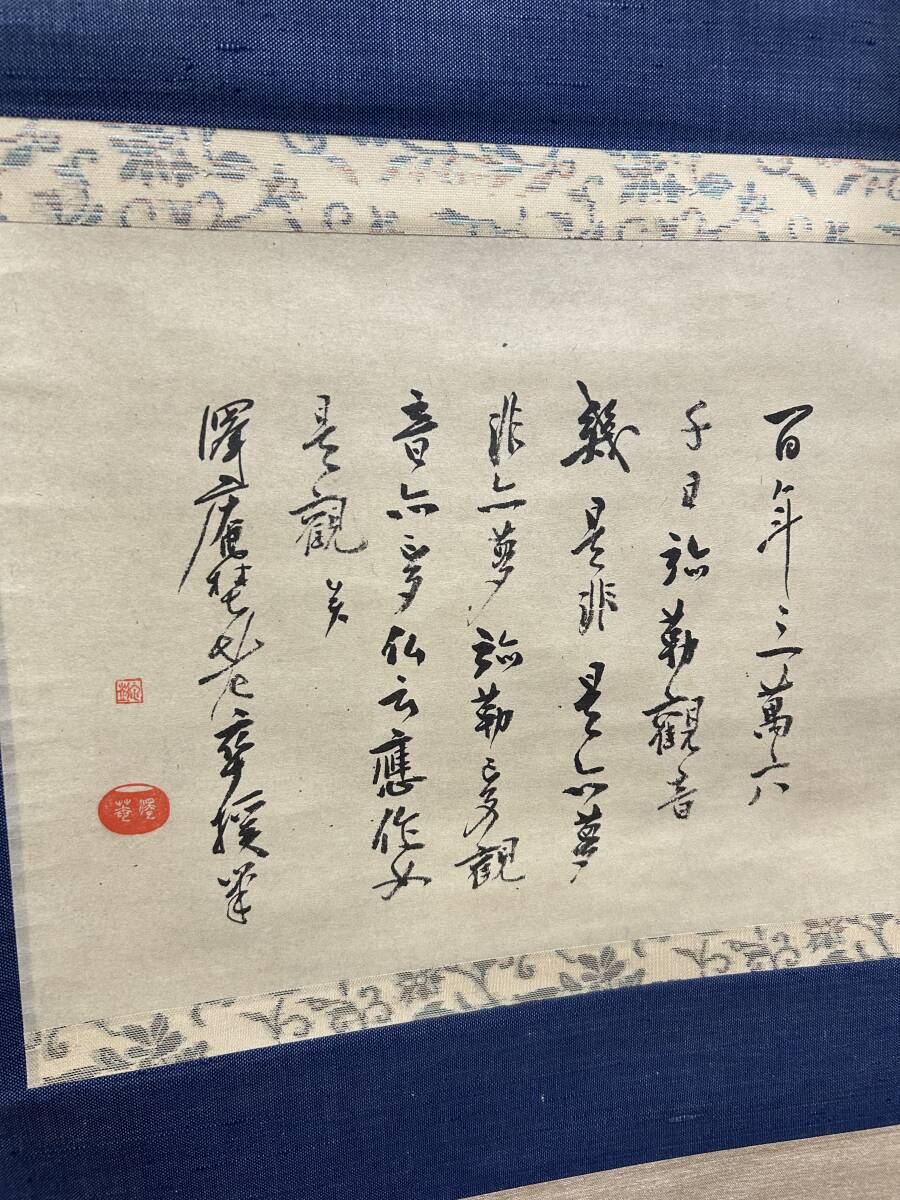 百年三萬六
千日弥勒觀音
幾是非是亦夢
非亦夢弥勒夢觀
音亦夢仏云應作女
是觀矣
澤庵埜老卒援筆
澤菴